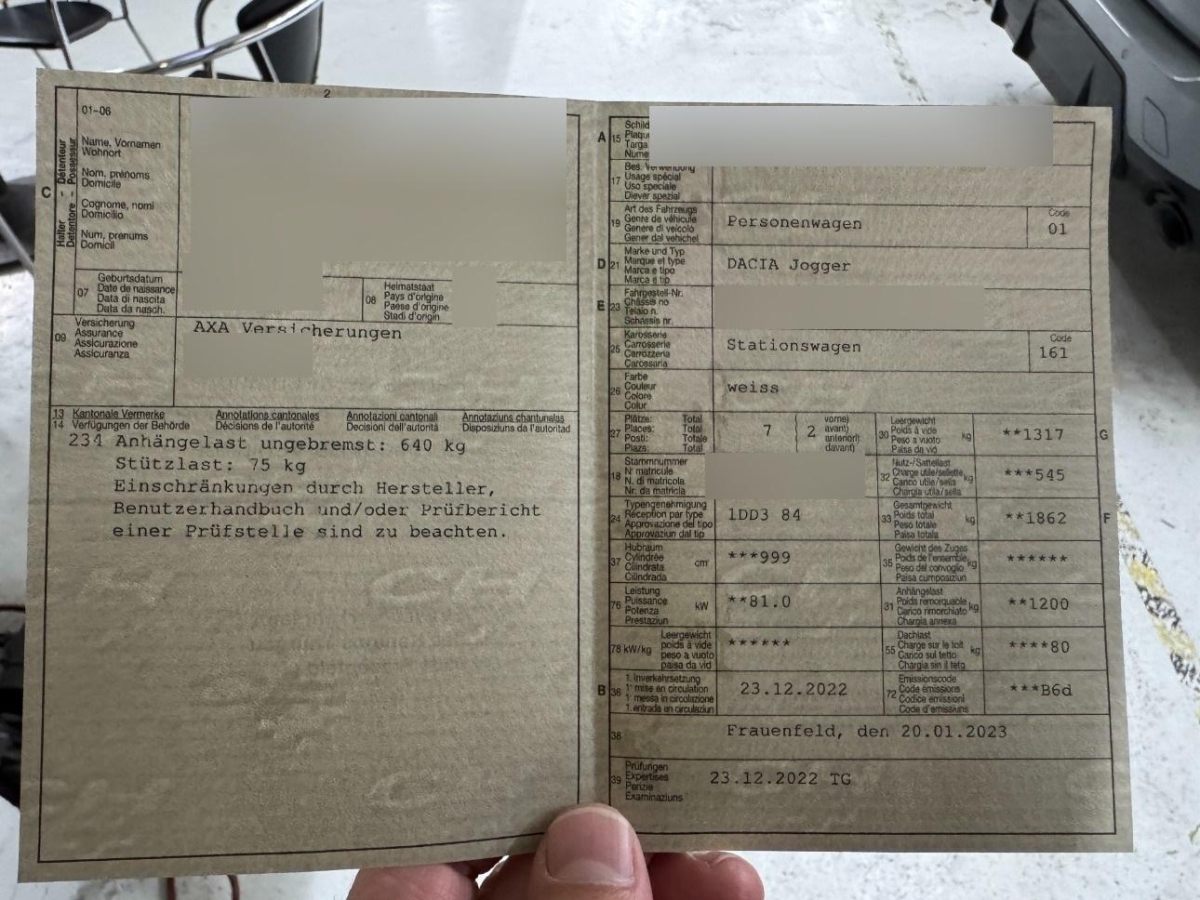 2
01-06
C
Halter - Détenteur
Detentore - Possessur
Name, Vornamen
Wohnort
Nom, prénoms
Domicile
Cognome, nomi
Domicilio
Num, prenums
Domicil
07
Geburtsdatum
Date de naissance
Data di nascita
Data da nasch.
08
Heimatstaat
Pays d'origine
Paese d'origine
Stadi d'origin
09
Versicherung
Assurance
Assicurazione
Assicuranza
AXA Versicherungen
13 Kantonale Vermerke Annotations cantonales Annotazioni cantonali Annotaziuns chantunalas
14 Verfügungen der Behörde Décisions de l'autorité Decisioni dell'autorità Disposiziuns da l'autoritad
234 Anhängelast ungebremst: 640 kg
Stützlast: 75 kg
Einschränkungen durch Hersteller,
Benutzerhandbuch und/oder Prüfbericht
einer Prüfstelle sind zu beachten.
A 15
Schild
Targa
17
Bes. Verwendung
Usage spécial
Uso speciale
Diever spezial
19
Art des Fahrzeugs
Genre de véhicule
Genere di veicolo
Gener dal vehichel
Personenwagen
Code
01
D 21
Marke und Typ
Marque et type
Marca e tipo
Marca e tip
DACIA Jogger
E 23
Fahrgestell-Nr.
Châssis no
Telaio n.
Schassis nr.
25
Karosserie
Carrosserie
Carrozzeria
Carossaria
Stationswagen
Code
161
26
Farbe
Couleur
Colore
Colur
weiss
27
Plätze: Total
Places: Total
Posti: Totale
Plazs: Total
7
2
vorne)
avant)
anteriori)
davant)
30
Leergewicht
Poids à vide
Peso a vuoto
Paisa da vid
kg
**1317
G
18
Stammnummer
N. matricule
N. di matricola
Nr. da matricla
32
Nutz-/Sattellast
Charge utile/sellette
Carico utile/sella
Chargia utila/sella
kg
***545
24
Typengenehmigung
Réception par type
Approvazione del tipo
Approvaziun dal tip
1DD3 84
33
Gesamtgewicht
Poids total
Peso totale
Paisa totala
kg
**1862
F
37
Hubraum
Cylindrée
Cilindrata
Cilindrada
cm³
***999
35
Gewicht des Zuges
Poids de l'ensemble
Peso del convoglio
Paisa cumposiziun
kg
******
76
Leistung
Puissance
Potenza
Prestaziun
kW
**81.0
31
Anhängelast
Poids remorquable
Carico rimorchiato
Chargia annexa
kg
**1200
78 kW/kg
Leergewicht
poids à vide
peso a vuoto
paisa da vid
******
55
Dachlast
Charge sur le toit
Carico sul tetto
Chargia sin il tetg
kg
****80
B 36
1. Inverkehrsetzung
1re mise en circulation
1. messa in circolazione
1. entrada en circulaziun
23.12.2022
72
Emissionscode
Code émissions
Codice emissioni
Code d'emissiuns
***B6d
38
Frauenfeld, den 20.01.2023
39
Prüfungen
Expertises
Perizie
Examinaziuns
23.12.2022 TG